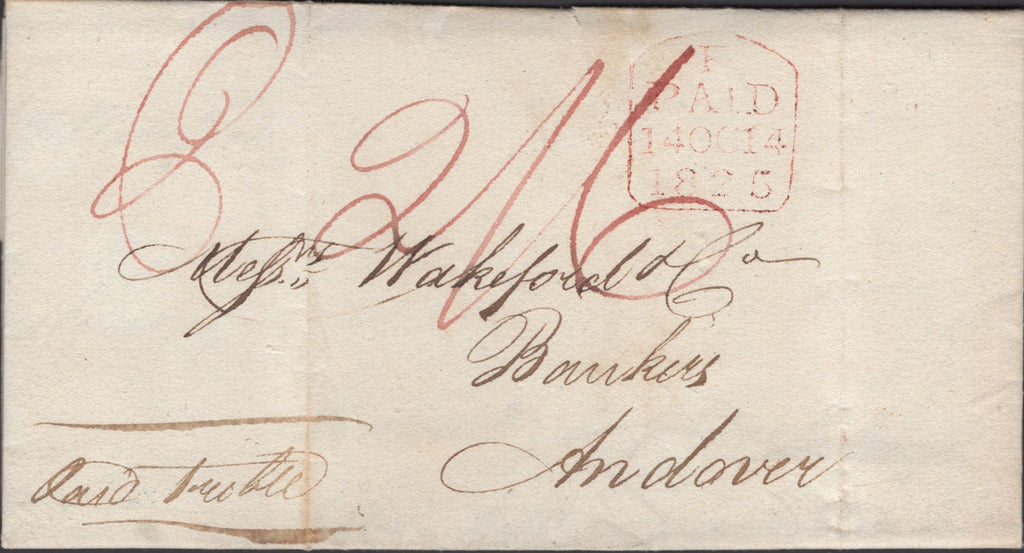 F
PAID
14OC14
1825
2/6
Messrs Wakeford & Co
Bankers
Andover
Paid treble